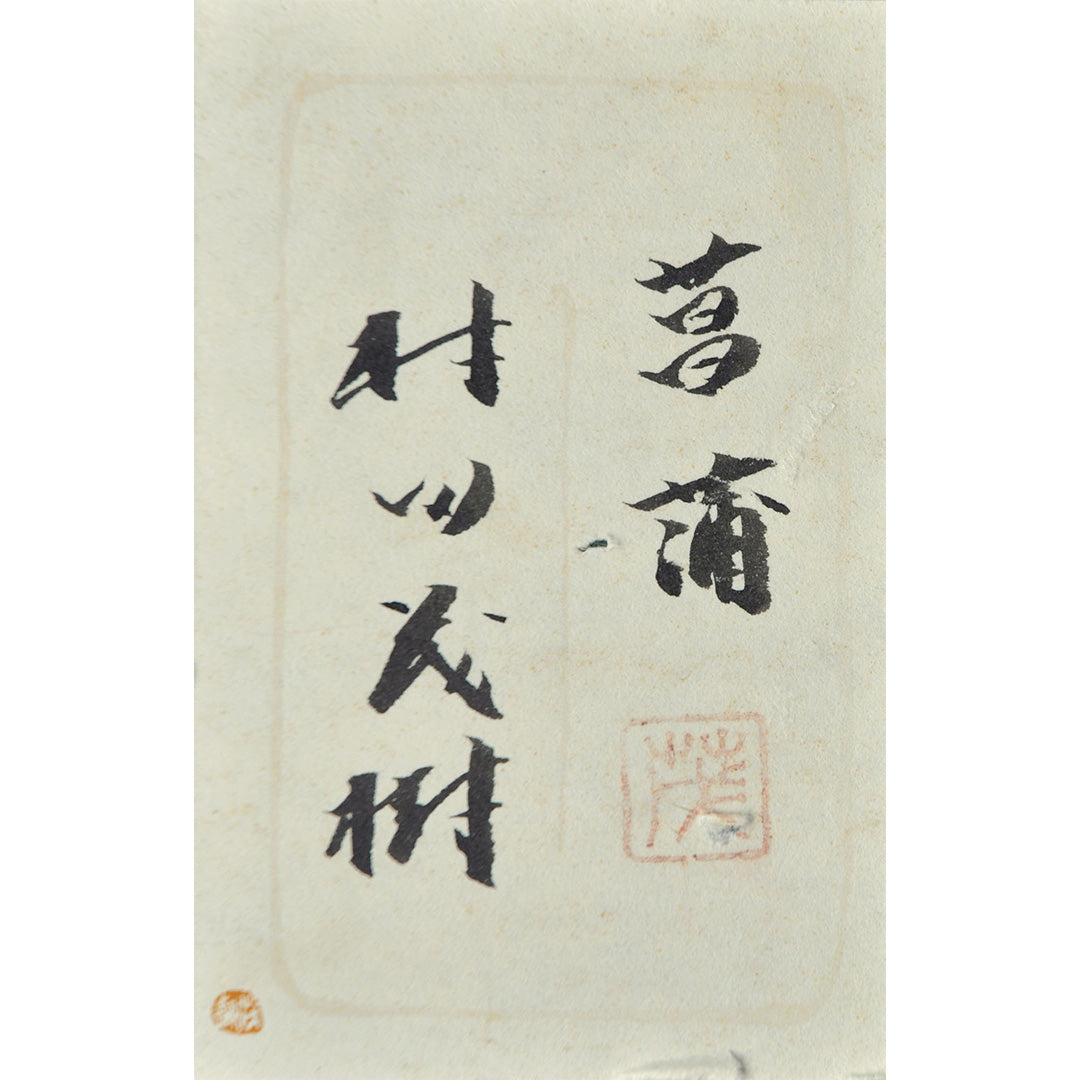 菖蒲
村田茂樹